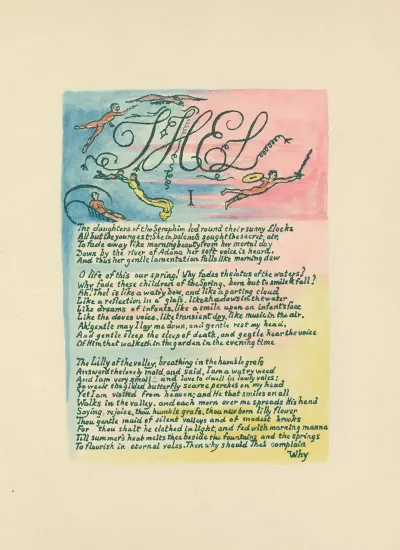 THEL
I
The daughters of the Seraphim led round their sunny flocks
All but the youngest: she in paleness sought the secret air,
To fade away like morning beauty from her mortal day
Down by the river of Adona her soft voice is heard,
And thus her gentle lamentation falls like morning dew
O life of this our spring! Why fades the lotus of the waters?
Why fade these children of the Spring, born but to smile & fall?
Ah! Thel is like a watry bow, and like a parting cloud
Like a reflection in a glass, like shadows in the water
Like dreams of infants, like a smile upon an infants face
Like the doves voice, like transient day, like music in the air.
Ah gentle may I lay me down, and gentle rest my head,
And gentle sleep the sleep of death, and gentle hear the voice
Of Him that walketh in the garden in the evening time
The Lilly of the valley, breathing in the humble grass
Answerd the lovely maid and said, I am a watry weed
And I am very small and love to dwell in lowly vales;
So weak the gilded butterfly scarce perches on my head
Yet I am visited from heaven; and He that smiles on all
Walks in the valley, and each morn over me spreads His hand
Saying, rejoice, thou humble grass, thou new born lilly flower
Thou gentle maid of silent valleys and of modest brooks
For thou shalt be clothed in light, and fed with morning manna
Till summers heat melts thee beside the fountains and the springs
To flourish in eternal vales. Then why should Thel complain
Why